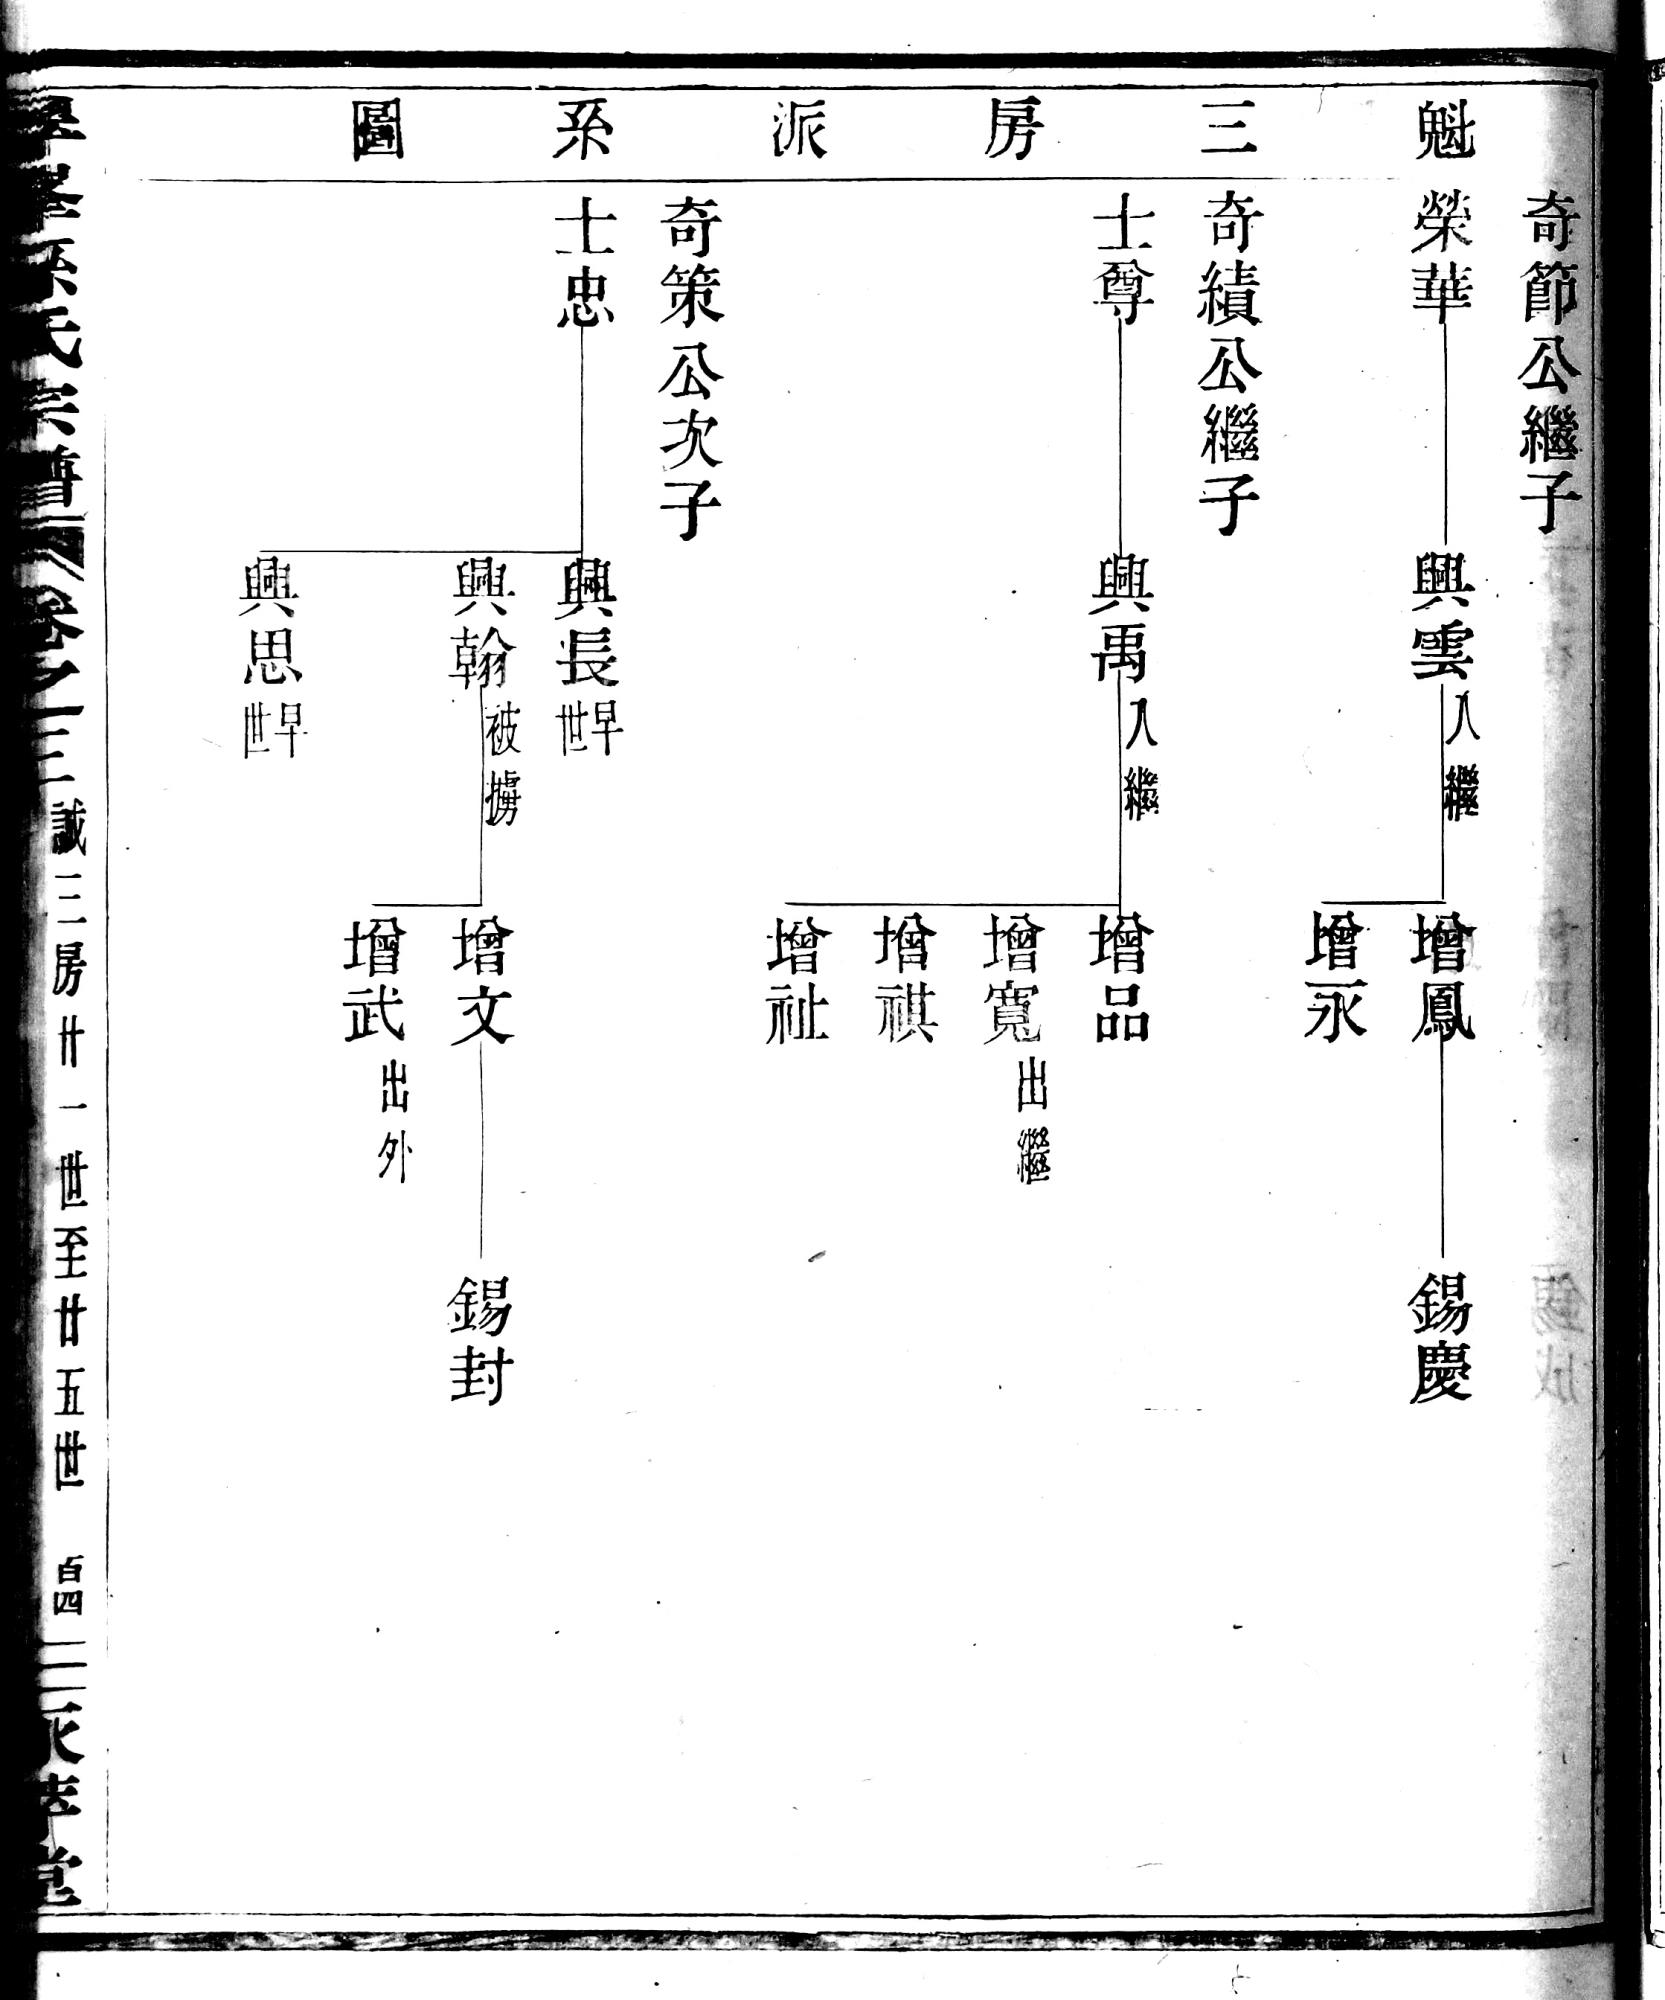 魁三房派系圖
奇節公繼子
榮華
興雲入繼
增鳳
增永
錫慶
奇績公繼子
士尊
興禹入繼
增品
增寬出繼
增祺
增祉
奇策公次子
士忠
興長早世
興翰被擄
興思早世
增文
增武出外
錫封
孫氏宗譜 卷之三 誠三房廿一世至廿五世 百四 永孝堂